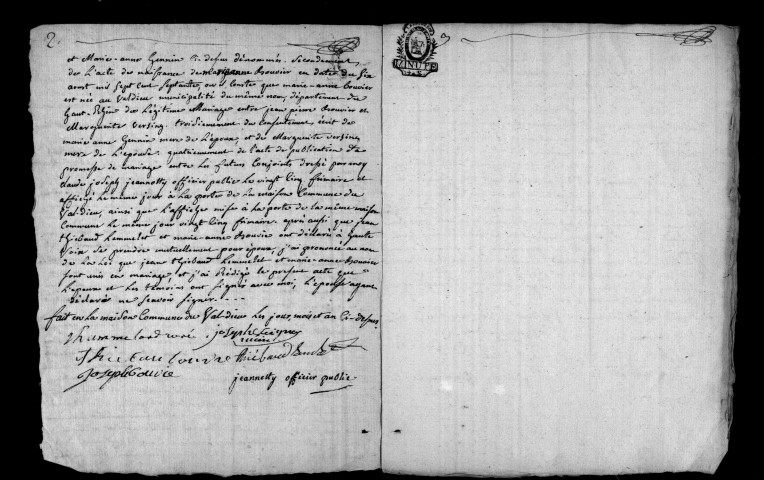 2.
et Marie-anne Gennin Ci desus dénommés. Secondement
de L'acte de naissance de marianne Bouvier en date du Six
aoust mil Sept Cent Septante, qui Conste que marie-anne bouvier
est née au Valdieu municipalité du même nom, département du
haut-Rhin du Légitime Mariage entre jean pierre Bouvier et
Marguerite Versing. troisiemement du Consentement écrit de
marie anne Gennin mere de L'époux, et de Marguerite versing
mere de L'epouse. quatriemement de l'acte de publication de
promesse de mariage entre Les futurs Conjoints dressé par moy
claude joseph jeannotty officier public le vingt Cinq frimaire et
affiché le même jour à la porte de la maison Commune du
Valdieu, ainsi que L'affiche mise à la porte de la même maison
Commune Le même jour vingt Cinq frimaire. après aussi que jean
thiebaud Lemmelet et marie-anne Bouvier ont déclaré à haute
Voix de prendre mutuellement pour époux, j'ai prononcé au nom
de La Loi que jean thiebaud Lemmelet et marie-anne Bouvier
sont unis en mariage et j'ai Rédigé le present acte que
L'epoux et Les témoins ont signés avec moi, L'épouse ayant
déclaré ne scavoir signer. - - -
fait en la maison Commune du Val-dieu Les jour, mois et an Ci-desus.
joseph
thiébaud
joseph
jeannotty officier public
3
MINUTE